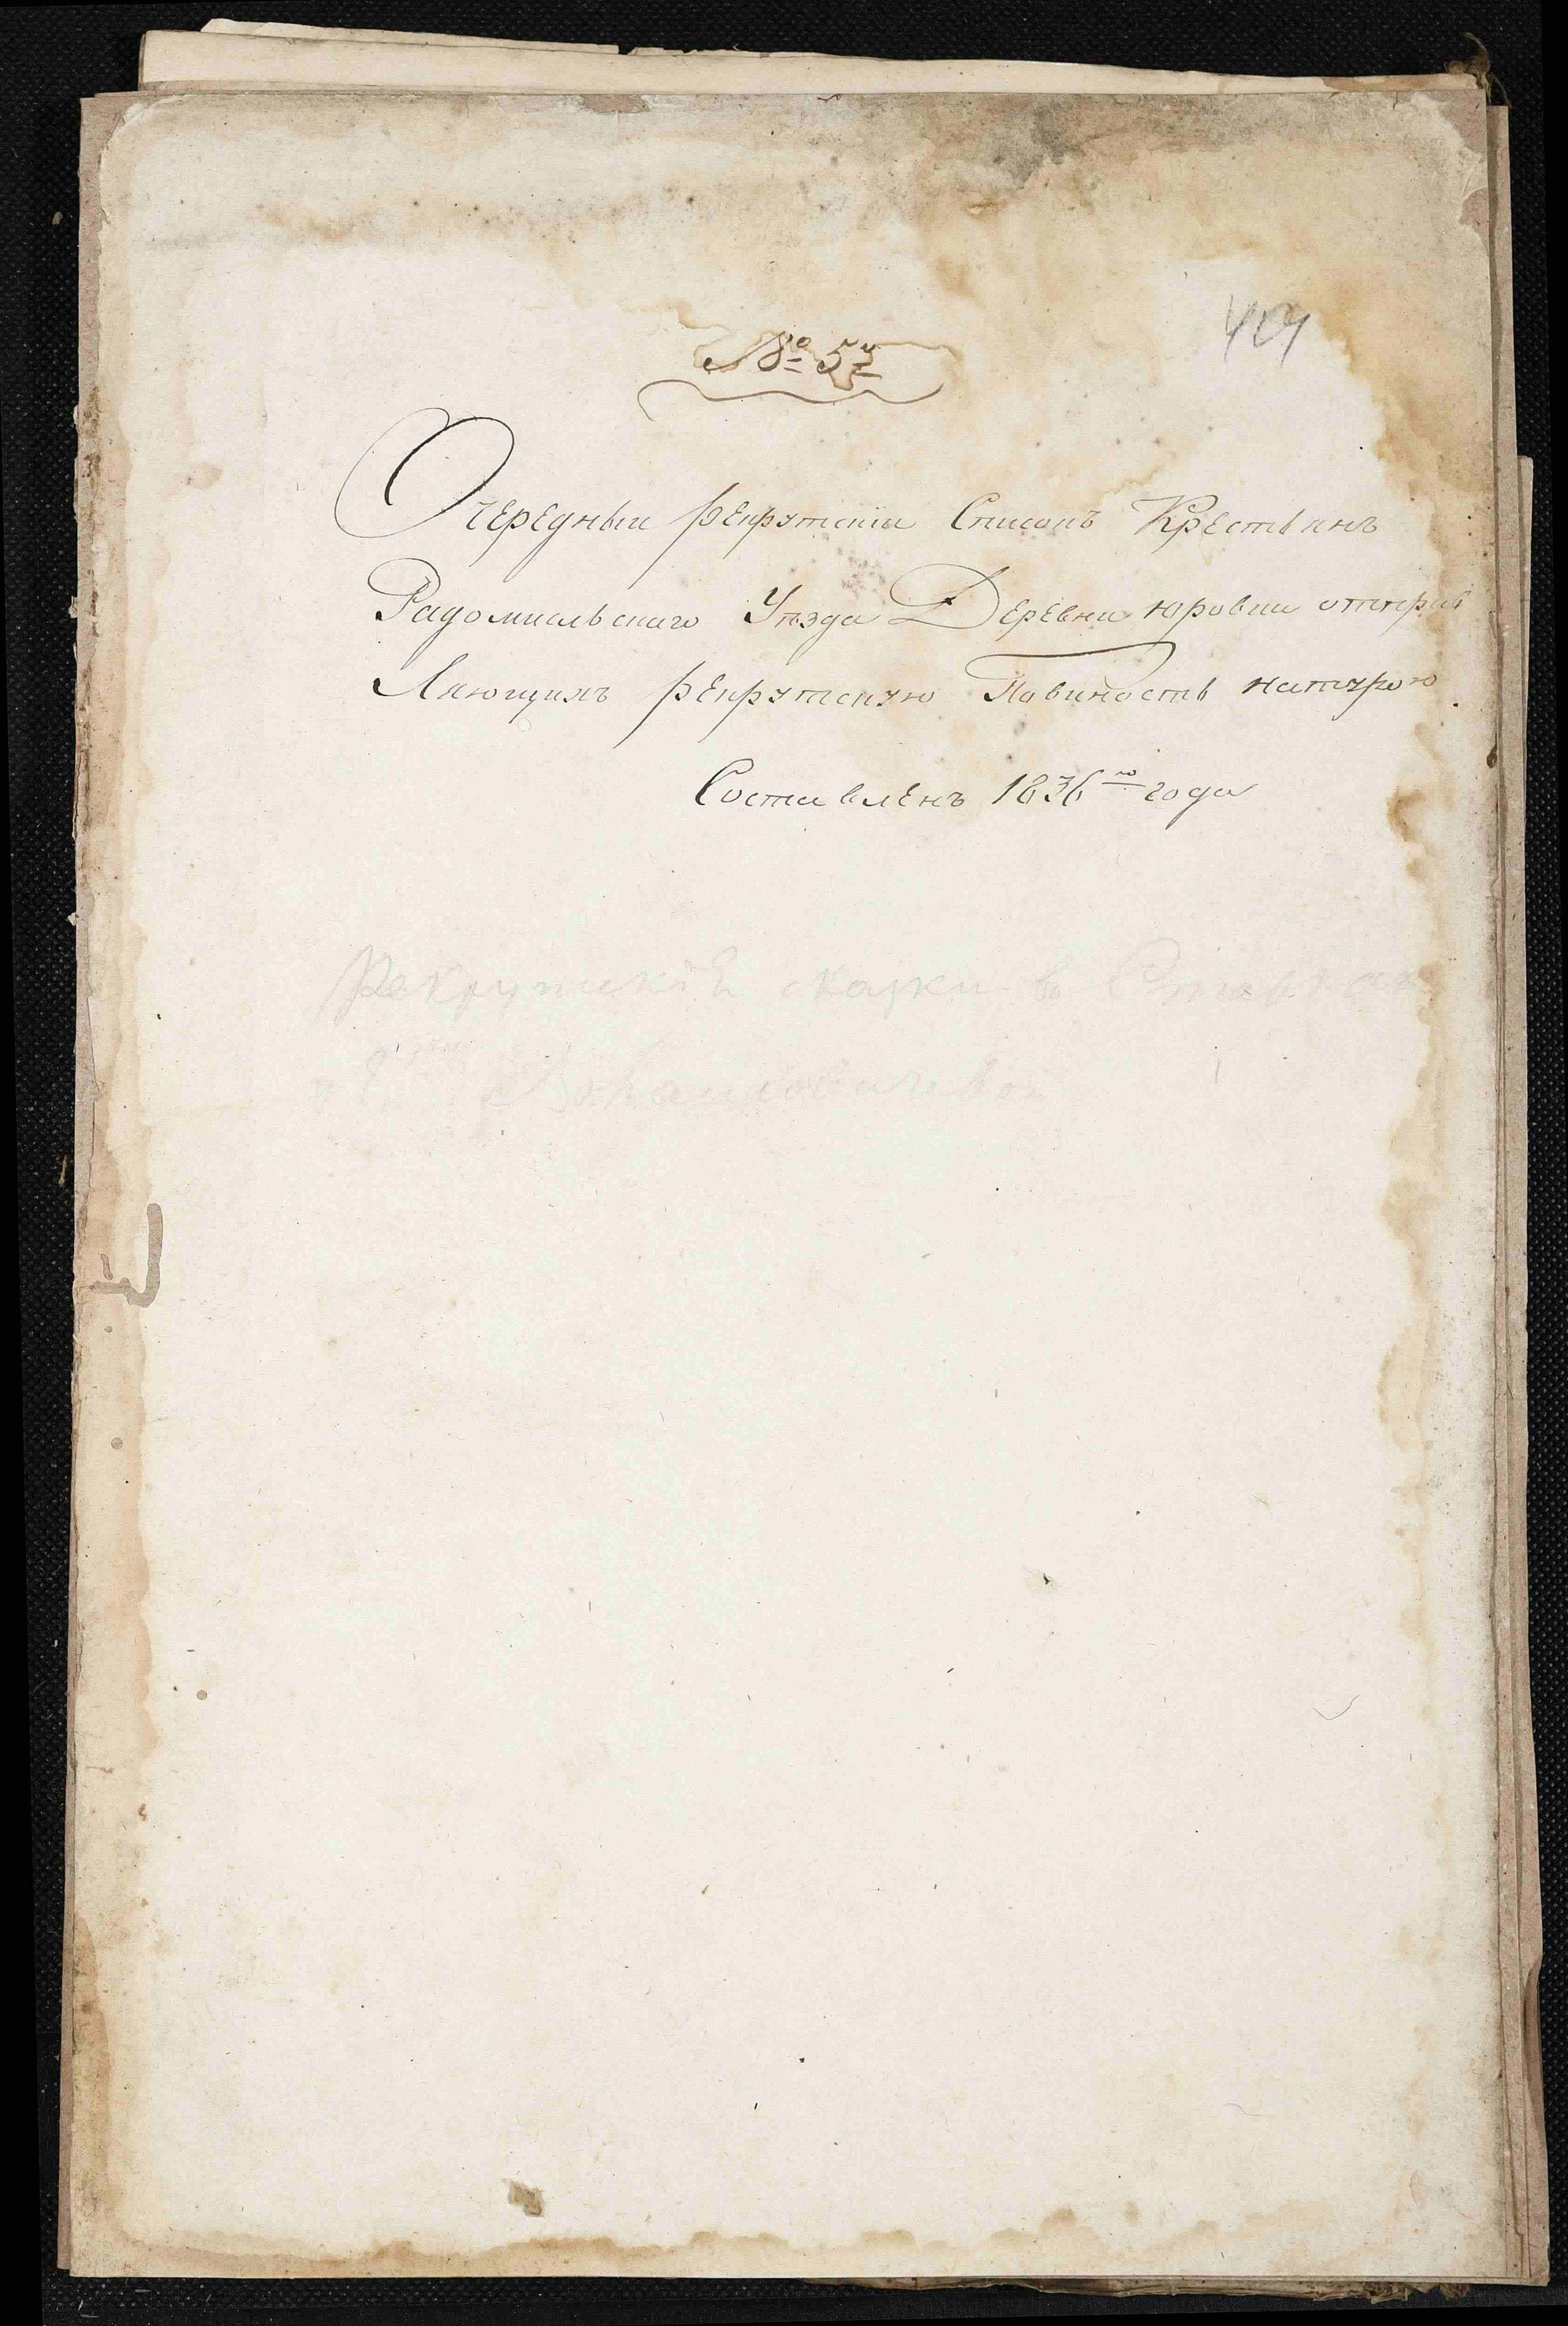 № 5й
Очередный рекрутскiй Списокъ Крестьянъ
Радомысльскаго Уѣзда Деревни Юровки отправ
Ляющимъ рекрутскую Повиность натурою
Составленъ 1836го года
Рекрутскiй сказки